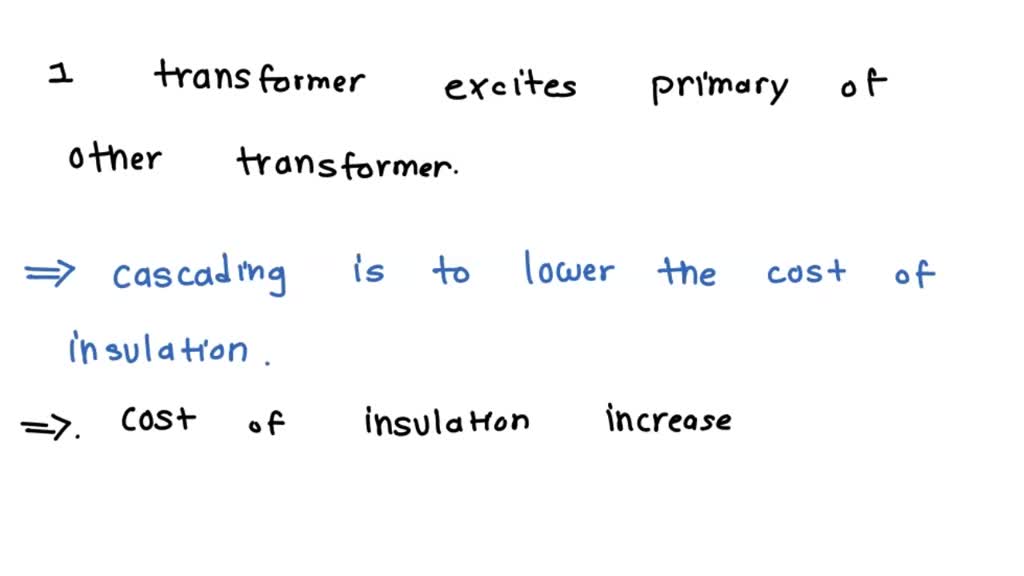 1 transformer excites primary of
other transformer.
⇒ cascading is to lower the cost of
insulation.
⇒. cost of insulation increase